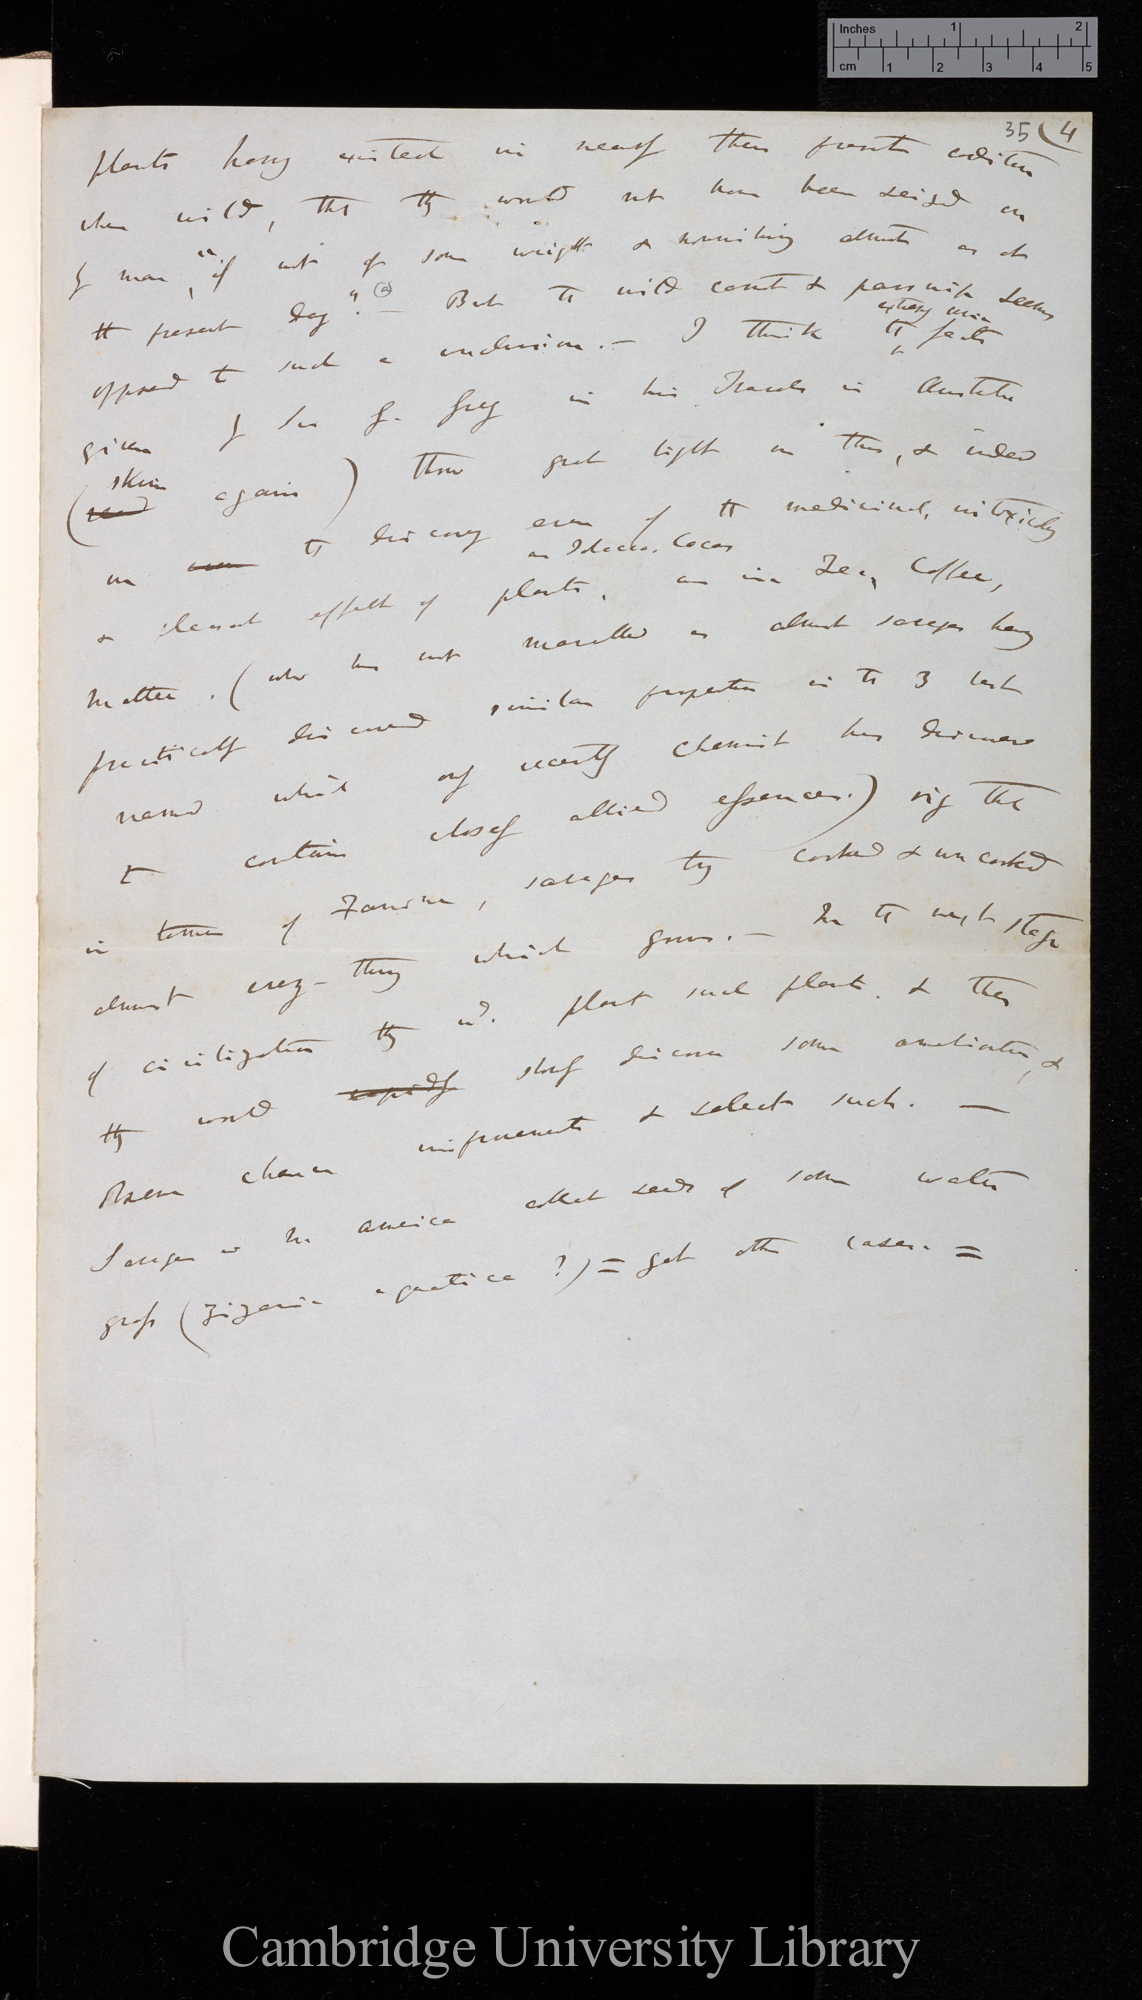 Inches 1 2
cm 1 2 3 4 5
35 (4
plants having existed in nearly their present condition
when wild, that they would not have been seized on
by man, "if not of some weight & nourishing almost as at
the present day".(a) — But the wild carrot & parsnip seems
opposed to such a conclusion. — I think the extremely facts
given by Sir G. Grey in his Travels in Australia
(read skim again) throw great light on this, & indeed
on even the discovery even of the medicinal, intoxicating
& pleasant effect of plants, as Tobacco, Cocoa as in Tea, Coffee,
Mattee. (who has not marvelled as almost savages having
practically discovered similar properties in the 3 last
named which only recently chemist has discovered
to contain closely allied essences.) viz that
in times of Famine, savages try cooked & uncooked
almost every-thing which grows. — In the next stage
of civilization they wd. plant such plants. & then
they would rapidly slowly discover some amelioration, &
observe chance improvements & select such. —
Savages in N. America collect seeds of some water
grass (Zizania aquatica ?) = get other cases. =
Cambridge University Library